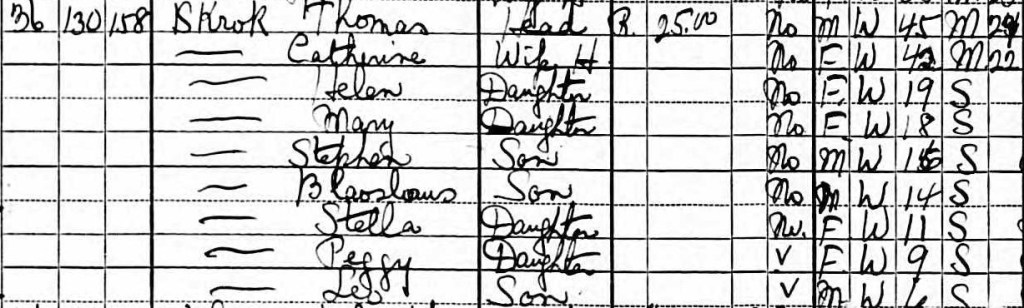 36 130 158 Skrok Thomas Head R. 25.00 No M W 45 M 24
— Catherine Wife H No F W 42 M 22
— Helen Daughter No F W 19 S
— Mary Daughter No F W 18 S
— Stephen Son No M W 16 S
— Son No M W 14 S
— Stella Daughter No. F W 11 S
— Peggy Daughter V F W 9 S
— Son V M W 6 S